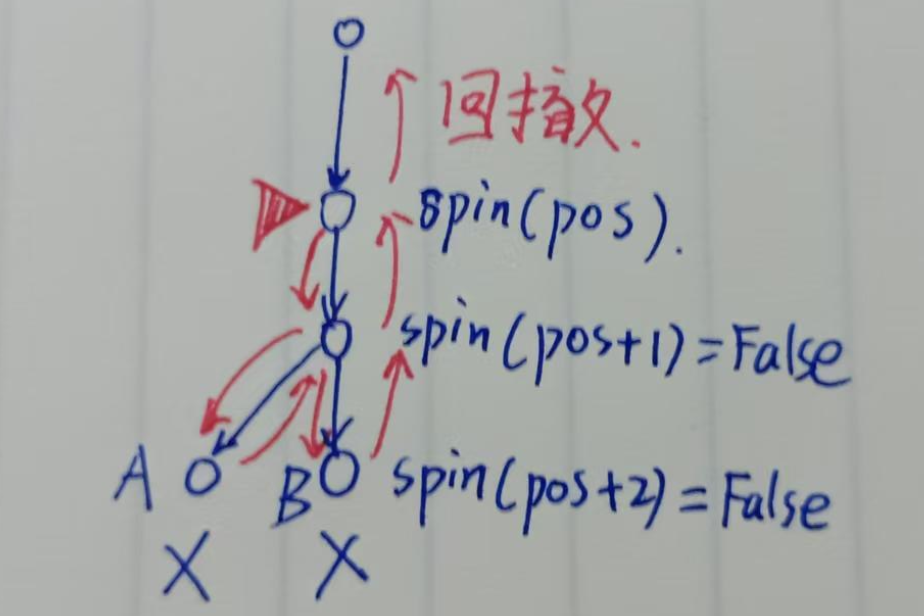 回撤.
spin(pos).
spin(pos+1)=False
A B spin(pos+2)=False
X X